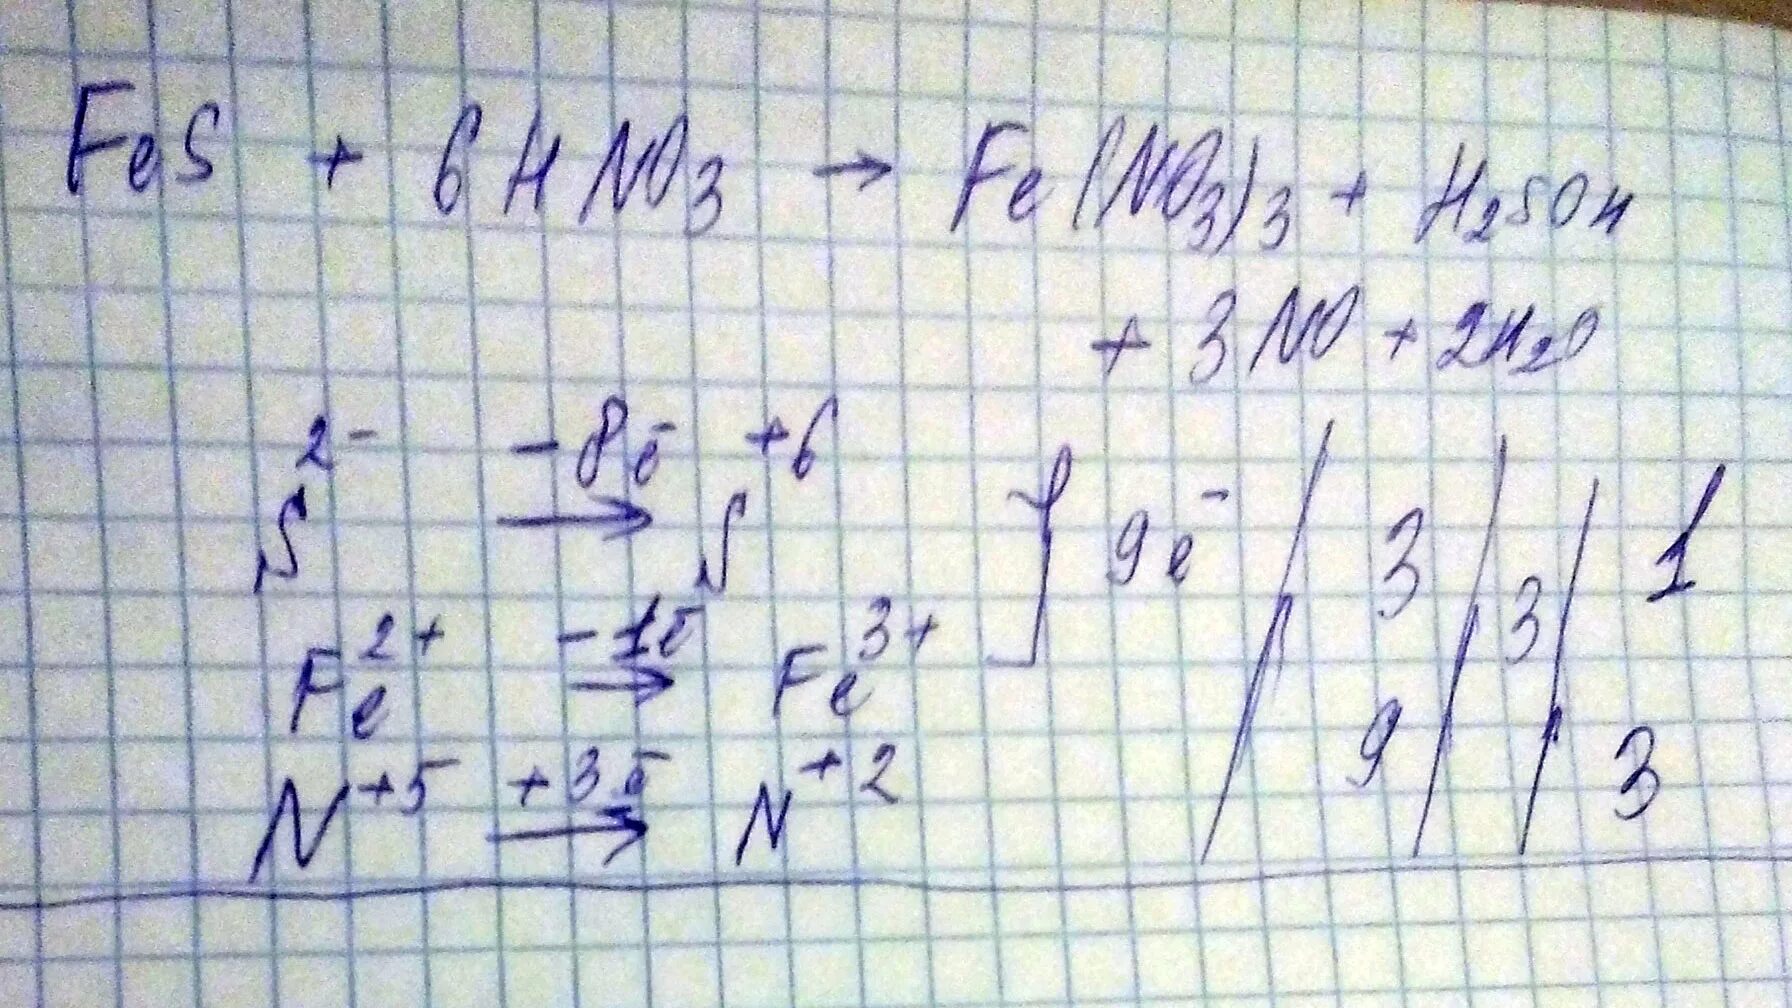 FeS + 6HNO₃ → Fe(NO₃)₃ + H₂SO₄
+ 3NO + 2H₂O
S²⁻ -8ē → S⁺⁶ } 9e⁻ / 3 / 3 / 1
Fe²⁺ -1ē → Fe³⁺
N⁺⁵ +3ē → N⁺² 9 / 3